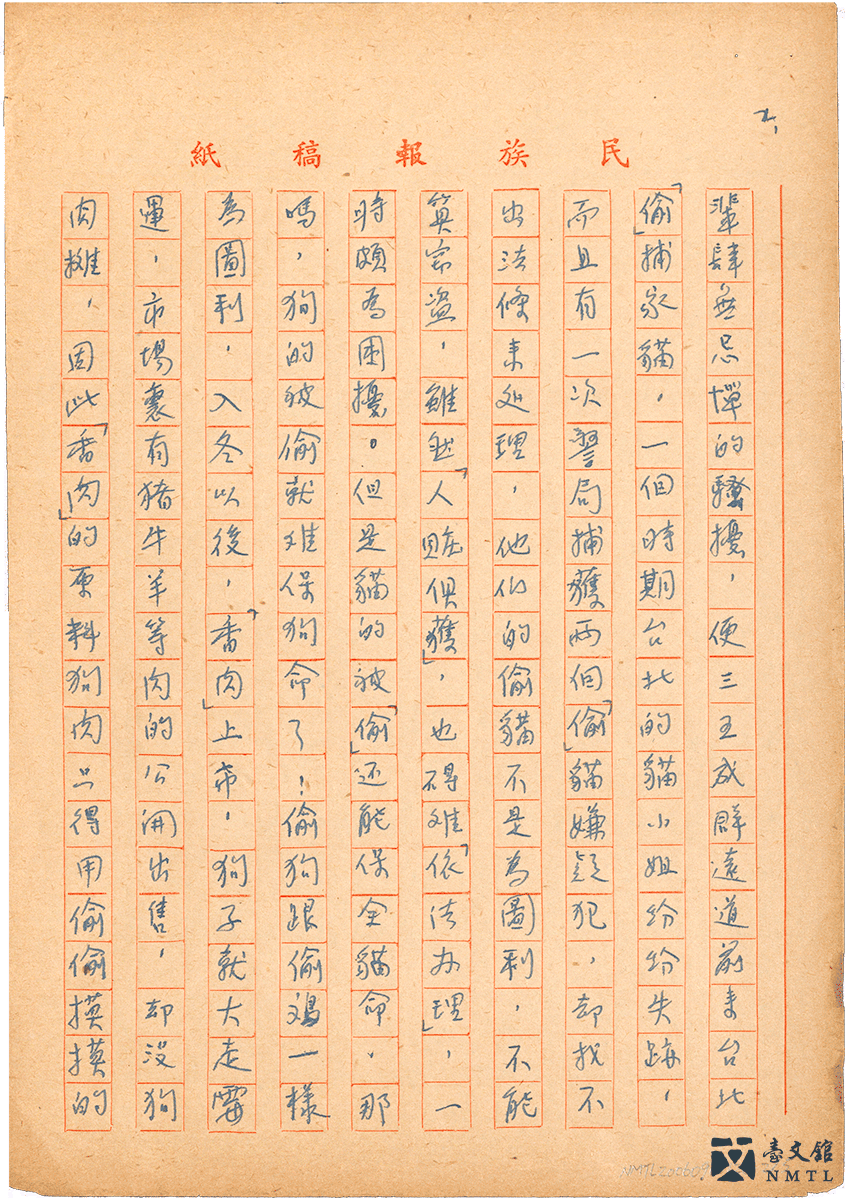 民族報稿紙
輩肆無忌憚的騷擾，便三五成群遠道前來台北
「偷」捕家貓，一個時期台北的貓小姐紛紛失踪，
而且有一次警局捕獲兩個「偷」貓嫌疑犯，却找不
出法條來処理，他们的偷貓不是為圖利，不能
算宗盗，雖然「人賍俱獲」，也碍难「依法办理」，一
時頗為困擾。但是貓的被「偷」还能保全貓命，那
嗎，狗的被偷就难保狗命了！偷狗跟偷鷄一樣
為圖利，入冬以後，「香肉」上市，狗子就大走霉
運，市場裏有猪牛羊等肉的公開出售，却没狗
肉攤，因此「香肉」的原料狗肉只得用偷偷摸摸的
臺文館
NMTL